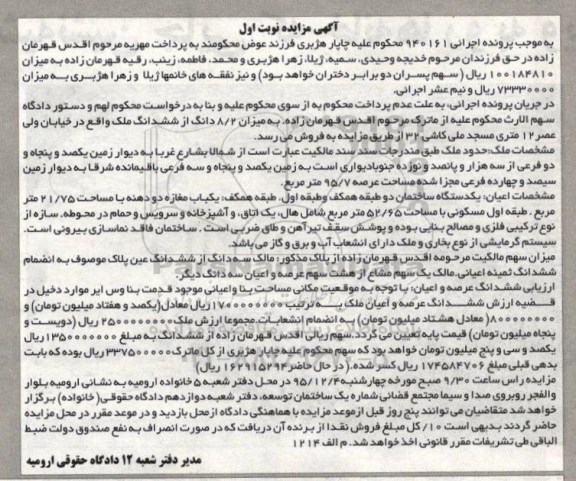 آگهی مزایده نوبت اول
به موجب پرونده اجرائی ۹۴۰۱۶۱ محکوم علیه چاپار هژبری فرزند عوض محکومند به پرداخت مهریه مرحوم اقدس قهرمان
زاده در حق فرزندان مرحوم خدیجه وحیدی، سمیه، ژیلا، زهرا هژبری و محمد، فاطمه، زینب، رقیه قهرمان زاده به میزان
۱۰۰۱۸۴۸۱۰ ریال (سهم پسران دو برابر دختران خواهد بود) و نیز نفقه های خانمها ژیلا و زهرا هژبری به میزان
۷۳۳۳۰۰۰۰ ریال و نیم عشر اجرائی.
در جریان پرونده اجرائی، به علت عدم پرداخت محکوم به از سوی محکوم علیه و بنا به درخواست محکوم لهم و دستور دادگاه
سهم الارث محکوم علیه از ماترک مرحوم اقدس قهرمان زاده، به میزان ۸/۲ دانگ از ششدانگ ملک واقع در خیابان ولی
عصر ۱۲ متری مسجد ملی کاشی ۳۲ از طریق مزایده به فروش می رسد.
مشخصات ملک:حدود ملک طبق مندرجات سند سند مالکیت عبارت است از شمالا بشارع غربا به دیوار زمین یکصد و پنجاه و
دو فرعی از سه هزار و پانصد و نوزده جنوبادیواری است به زمین یکصد و پنجاه و سه فرعی باقیمانده شرقا به دیوار زمین
سیصد و چهارده فرعی مجزا شده مساحت عرصه ۹۵/۷ متر مربع.
مشخصات اعیان: یکدستگاه ساختمان دو طبقه همکف وطبقه اول. طبقه همکف: یکباب مغازه دو دهنه با مساحت ۲۱/۷۵ متر
مربع . طبقه اول مسکونی با مساحت ۵۲/۶۵ متر مربع شامل هال، یک اتاق، و آشپزخانه و سرویس و حمام در محوطه. سازه از
نوع ترکیبی فلزی و مصالح بنایی بوده و پوشش سقف تیرآهن و طاق ضربی است . ساختمان فاقد نماسازی بیرونی است.
سیستم گرمایشی از نوع بخاری و ملک دارای انشعاب آب و برق و گاز می باشد.
میزان سهم مالکیت مرحومه اقدس قهرمان زاده از پلاک مذکور: مالک سه دانگ از ششدانگ عین پلاک موصوف به انضمام
ششدانگ ثمینه اعیانی.مالک یک سهم مشاع از هشت سهم عرصه و اعیان سه دانگ دیگر.
ارزیابی ششدانگ عرصه و اعیان: با توجه به موقعیت مکانی مساحت بنا واعیانی موجود قدمت بنا وس ایر موارد دخیل در
قضیه ارزش ششدانگ عرصه و اعیان ملک به ترتیب ۱۷۰۰۰۰۰۰۰۰ ریال معادل(یکصد و هفتاد میلیون تومان) و
۸۰۰۰۰۰۰۰۰( معادل هشتاد میلیون تومان) به انضمام انشعابات.مجموعا ارزش ملک۲۵۰۰۰۰۰۰۰۰ ریال (دویست و
پنجاه میلیون تومان) قیمت پایه تعیین می گردد.سهم ریالی اقدس قهرمان زاده از ششدانگ به مبلغ ۱۳۵۰۰۰۰۰۰۰ ریال
یکصد و سی و پنج میلیون تومان خواهد بود که سهم محکوم علیه چاپار هژبری از کل ماترک ۳۳۷۵۰۰۰۰۰ ریال بوده که بابت
بدهی قبلی مبلغ ۱۷۴۵۸۴۷۰۶ ریال کسر شده. ( در حال حاضر ۱۶۲۹۱۵۲۹۴ ریال)
مزایده راس ساعت ۹/۳۰ صبح مورخه چهارشنبه ۹۵/۱۲/۴ در محل دفتر شعبه ۵ خانواده ارومیه به نشانی ارومیه بلوار
والفجر روبروی صدا و سیما مجتمع قضائی شماره یک ساختمان توسعه، دفتر شعبه دوازدهم دادگاه حقوقی( خانواده) برگزار
خواهد شد متقاضیان می توانند پنج روز قبل از موعد مزایده با هماهنگی دادگاه از محل بازدید و در موعد مقرر در محل مزایده
حاضر گردند بدیهی است ۱۰/ کل مبلغ فروش نقدا از برنده آن دریافت که در صورت انصراف به نفع صندوق دولت ضبط
الباقی طی تشریفات مقرر قانونی اخذ خواهد شد. م الف ۱۲۱۴
مدیر دفتر شعبه ۱۲ دادگاه حقوقی ارومیه